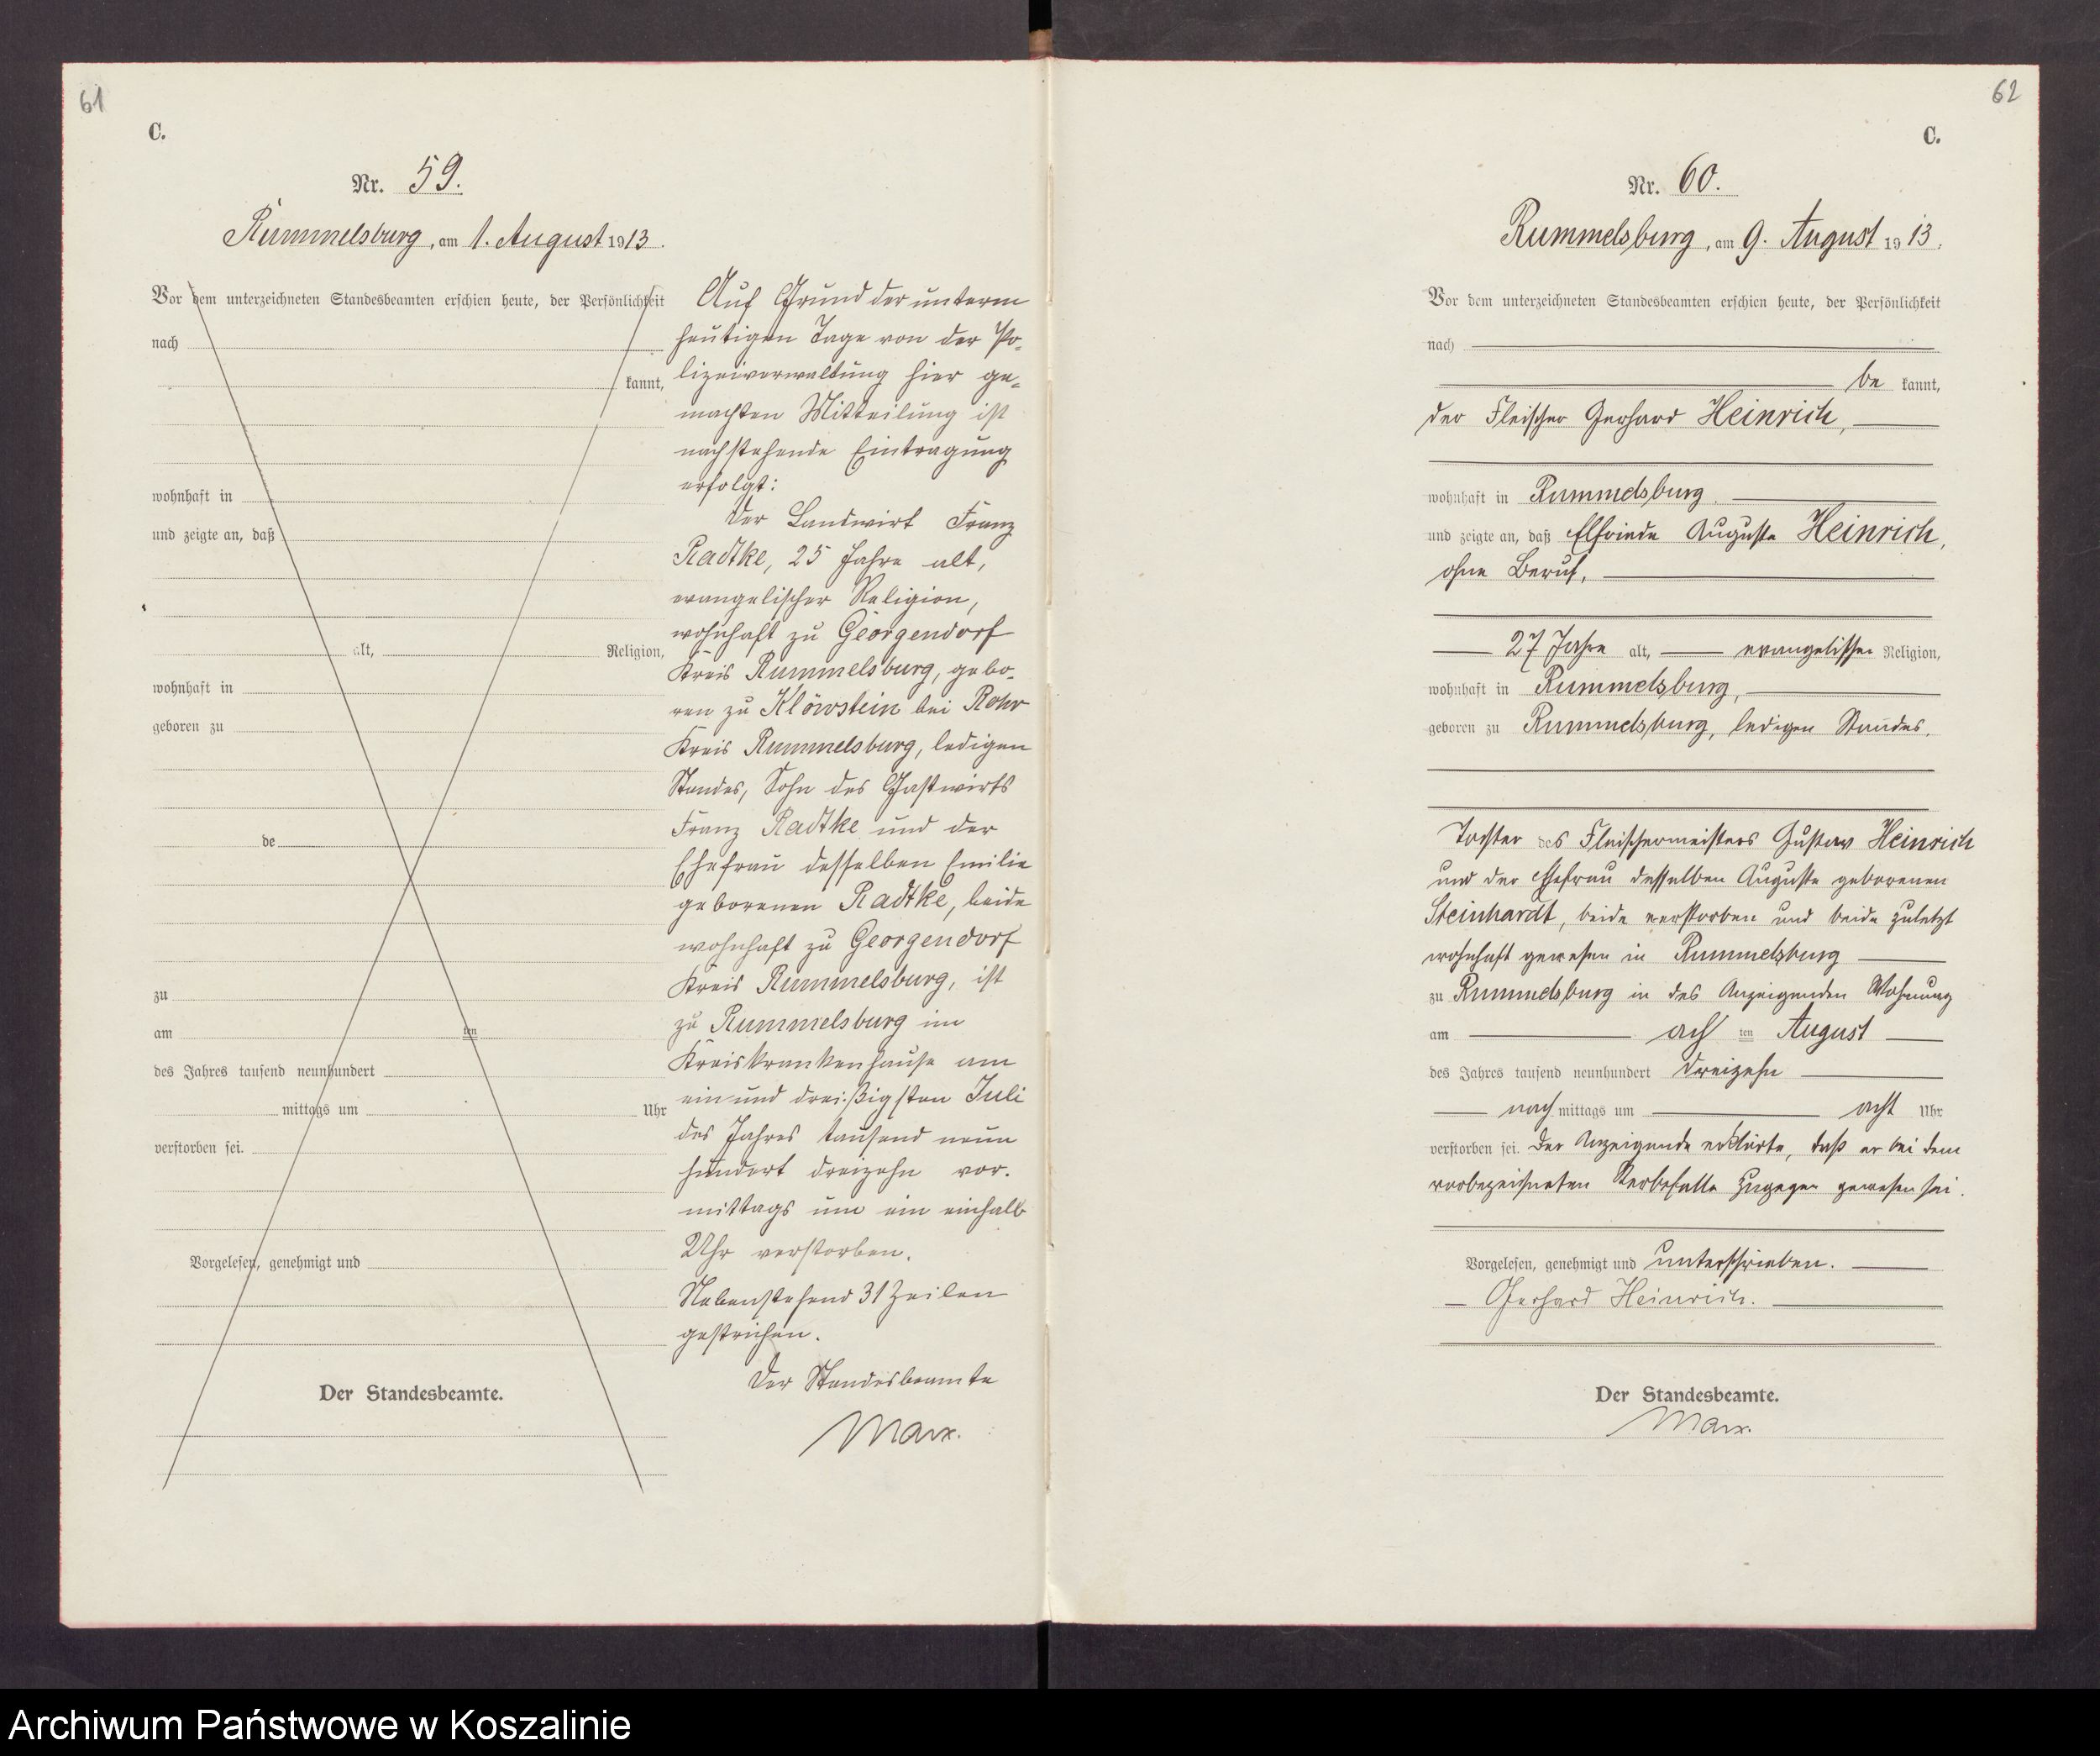 61
C.
Nr. 59.
Rummelsburg, am 1. August 1913.
Vor dem unterzeichneten Standesbeamten erschien heute, der Persönlichkeit
nach
kannt,
wohnhaft in
und zeigte an, daß
alt, Religion,
wohnhaft in
geboren zu
de
zu
am ten
des Jahres tausend neunhundert
mittags um Uhr
verstorben sei.
Vorgelesen, genehmigt und
Der Standesbeamte.
Auf Grund der unterm
heutigen Tage von der Po-
lizeiverwaltung hier ge-
machten Mitteilung ist
nachstehende Eintragung
erfolgt:
Der Landwirt Franz
Radtke, 25 Jahre alt,
evangelischer Religion,
wohnhaft zu Georgendorf
Kreis Rummelsburg, gebo-
ren zu Klöwstein bei Rohr
Kreis Rummelsburg, ledigen
Standes, Sohn des Gastwirts
Franz Radtke und der
Ehefrau desselben Emilie
geborenen Radtke, beide
wohnhaft zu Georgendorf
Kreis Rummelsburg, ist
zu Rummelsburg im
Kreiskrankenhause am
ein und dreißigsten Juli
des Jahres tausend neun
hundert dreizehn vor-
mittags um ein einhalb
Uhr verstorben.
Nebenstehend 31 Zeilen
gestrichen.
Der Standesbeamte
Marx.
62
C.
Nr. 60.
Rummelsburg, am 9. August 1913.
Vor dem unterzeichneten Standesbeamten erschien heute, der Persönlichkeit
nach
be kannt,
der Fleischer Gerhard Heinrich,
wohnhaft in Rummelsburg.
und zeigte an, daß Elfriede Auguste Heinrich,
ohne Beruf,
27 Jahre alt, evangelischer Religion,
wohnhaft in Rummelsburg,
geboren zu Rummelsburg, ledigen Standes,
Tochter des Fleischermeisters Gustav Heinrich
und der Ehefrau desselben Auguste geborenen
Steinhardt, beide verstorben und beide zuletzt
wohnhaft gewesen in Rummelsburg
zu Rummelsburg in des Anzeigenden Wohnung
am ach ten August
des Jahres tausend neunhundert dreizehn
nach mittags um acht Uhr
verstorben sei. Der Anzeigende erklärte, daß er bei dem
vorbezeichneten Sterbefalle zugegen gewesen sei.
Vorgelesen, genehmigt und unterschrieben.
Gerhard Heinrich.
Der Standesbeamte.
Marx.
Archiwum Państwowe w Koszalinie